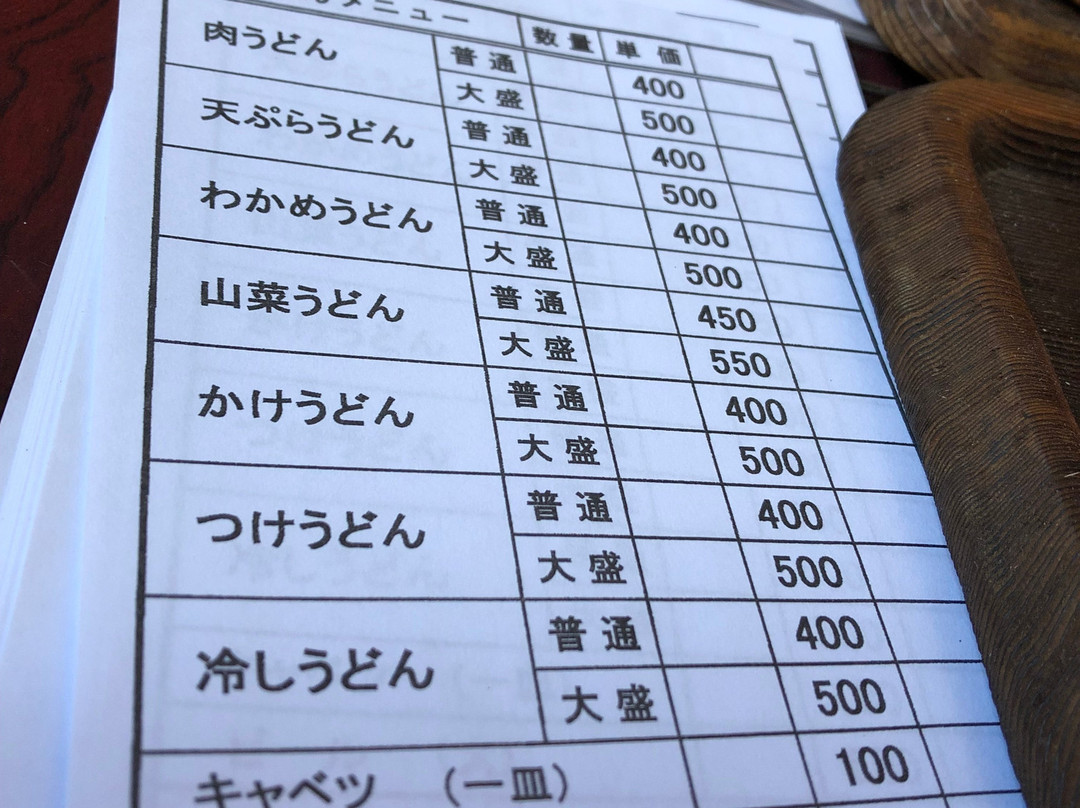 メニュー 数量 単価
肉うどん 普通 400
大盛 500
天ぷらうどん 普通 400
大盛 500
わかめうどん 普通 400
大盛 500
山菜うどん 普通 450
大盛 550
かけうどん 普通 400
大盛 500
つけうどん 普通 400
大盛 500
冷しうどん 普通 400
大盛 500
キャベツ (一皿) 100